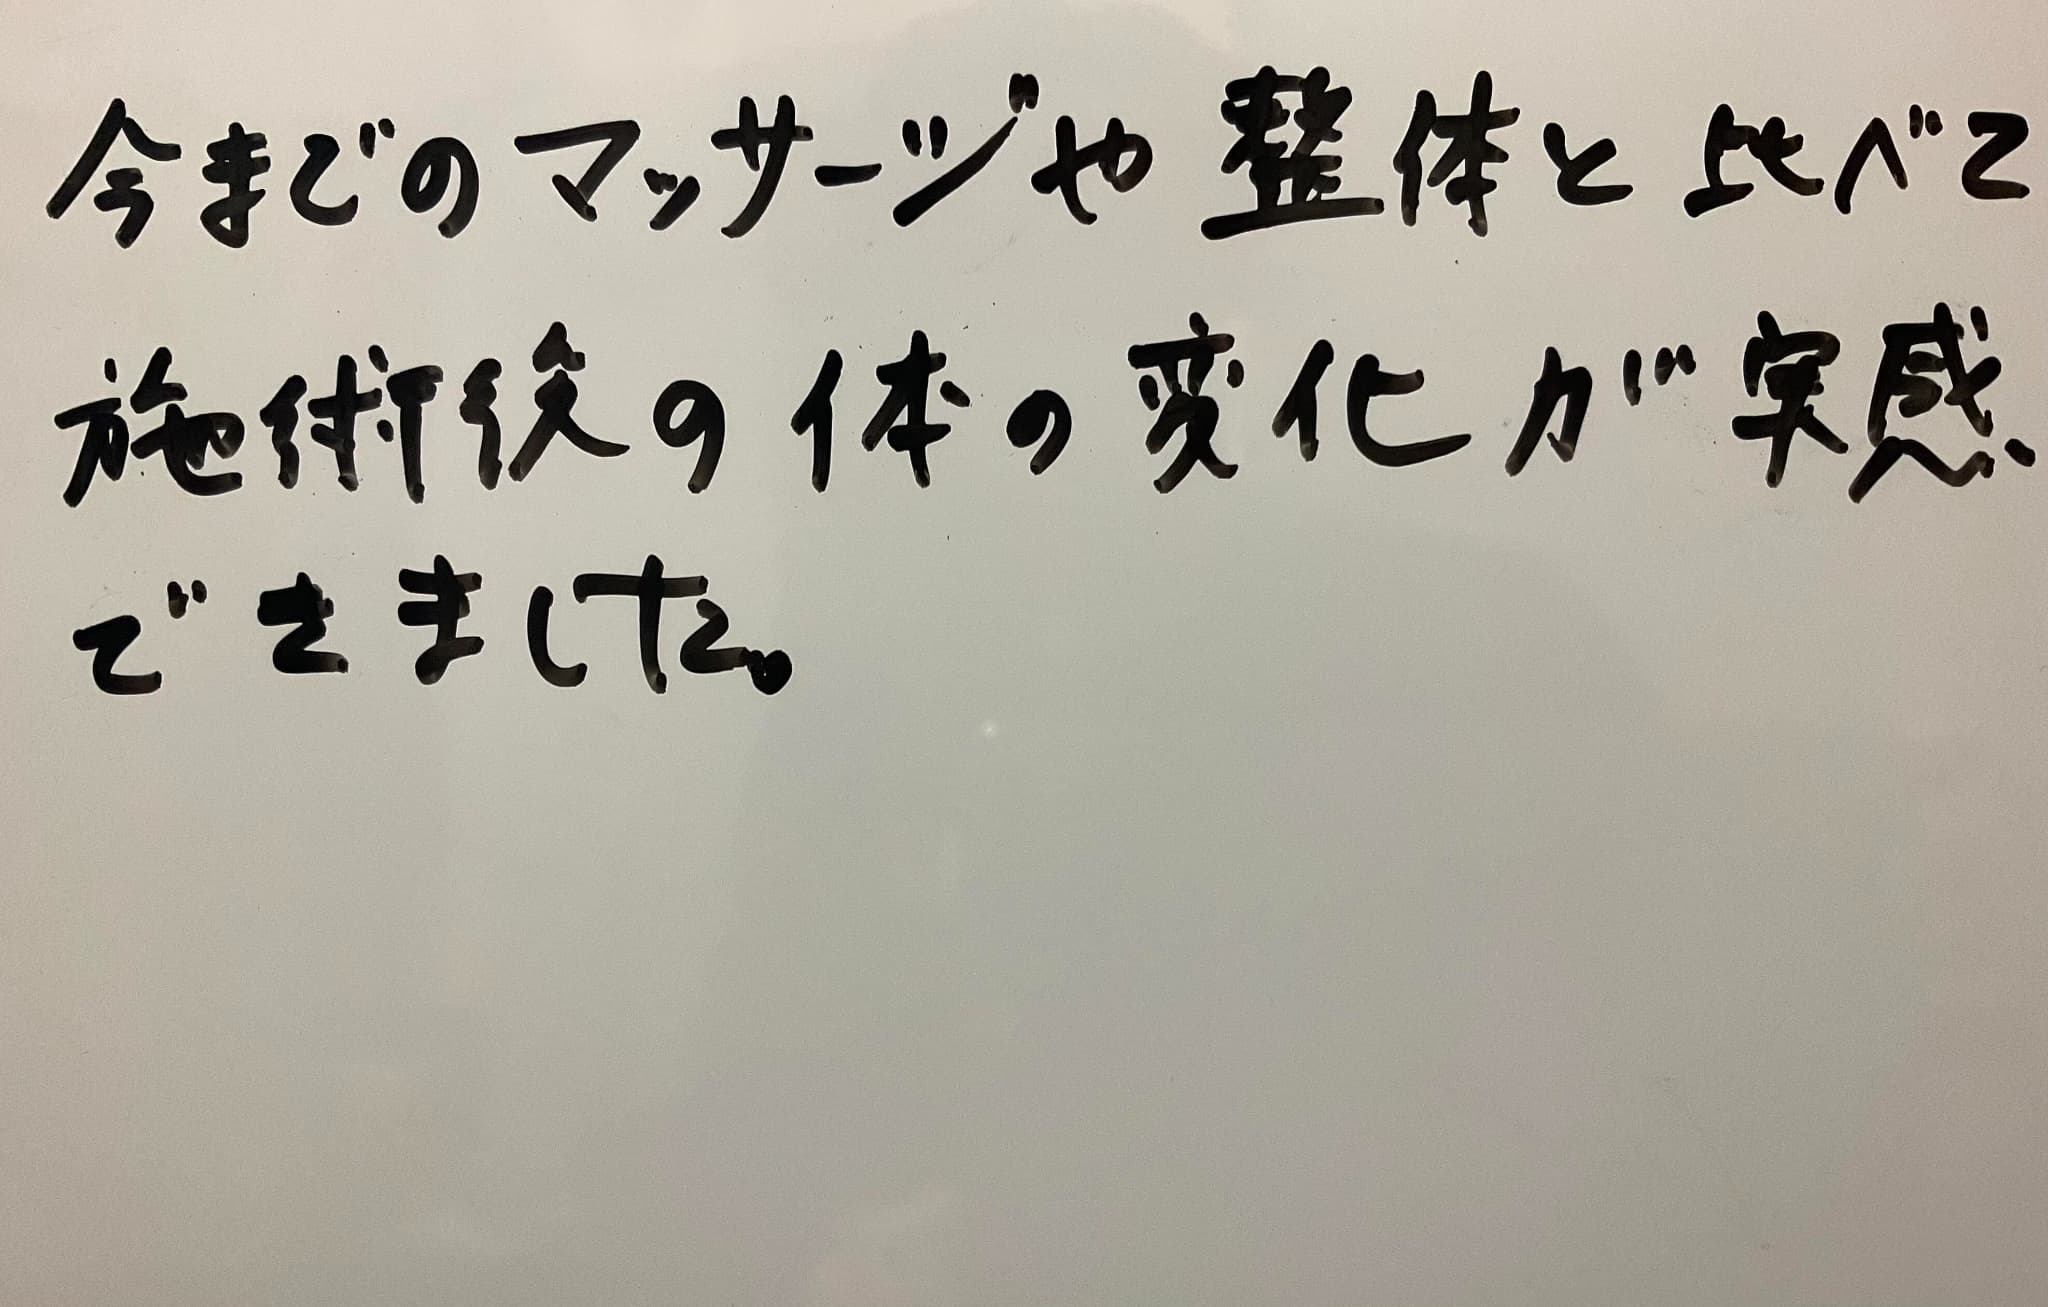 今までのマッサージや整体と比べて
施術後の体の変化が実感
できました。